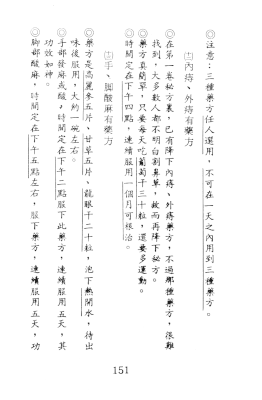 ◎注意:三種藥方任人選用,不可在一天之內用到三種藥方。
㈩內痔、外痔有藥方
◎在第一套秘方裏,已有降下內痔、外痔藥方,不過那種藥方,很難
找到,大多數人都不明白割鼻草,故而再降下秘方。
◎藥方真簡單,只要每天吃葡萄干三十粒,還要多運動。
◎時間定在下午四點,連續服用一個月可根治。
㈩手、脚酸麻有藥方
◎藥方是高麗參五片、甘草五片、龍眼干二十粒,泡下熱開水,待出
味後服用,大約一碗左右。
◎手部發麻或酸,時間定在下午二點服下此藥方,連續服用五天,其
功效如神。
◎脚部酸麻,時間定在下午五點左右,服下藥方,連續服用五天,功
151